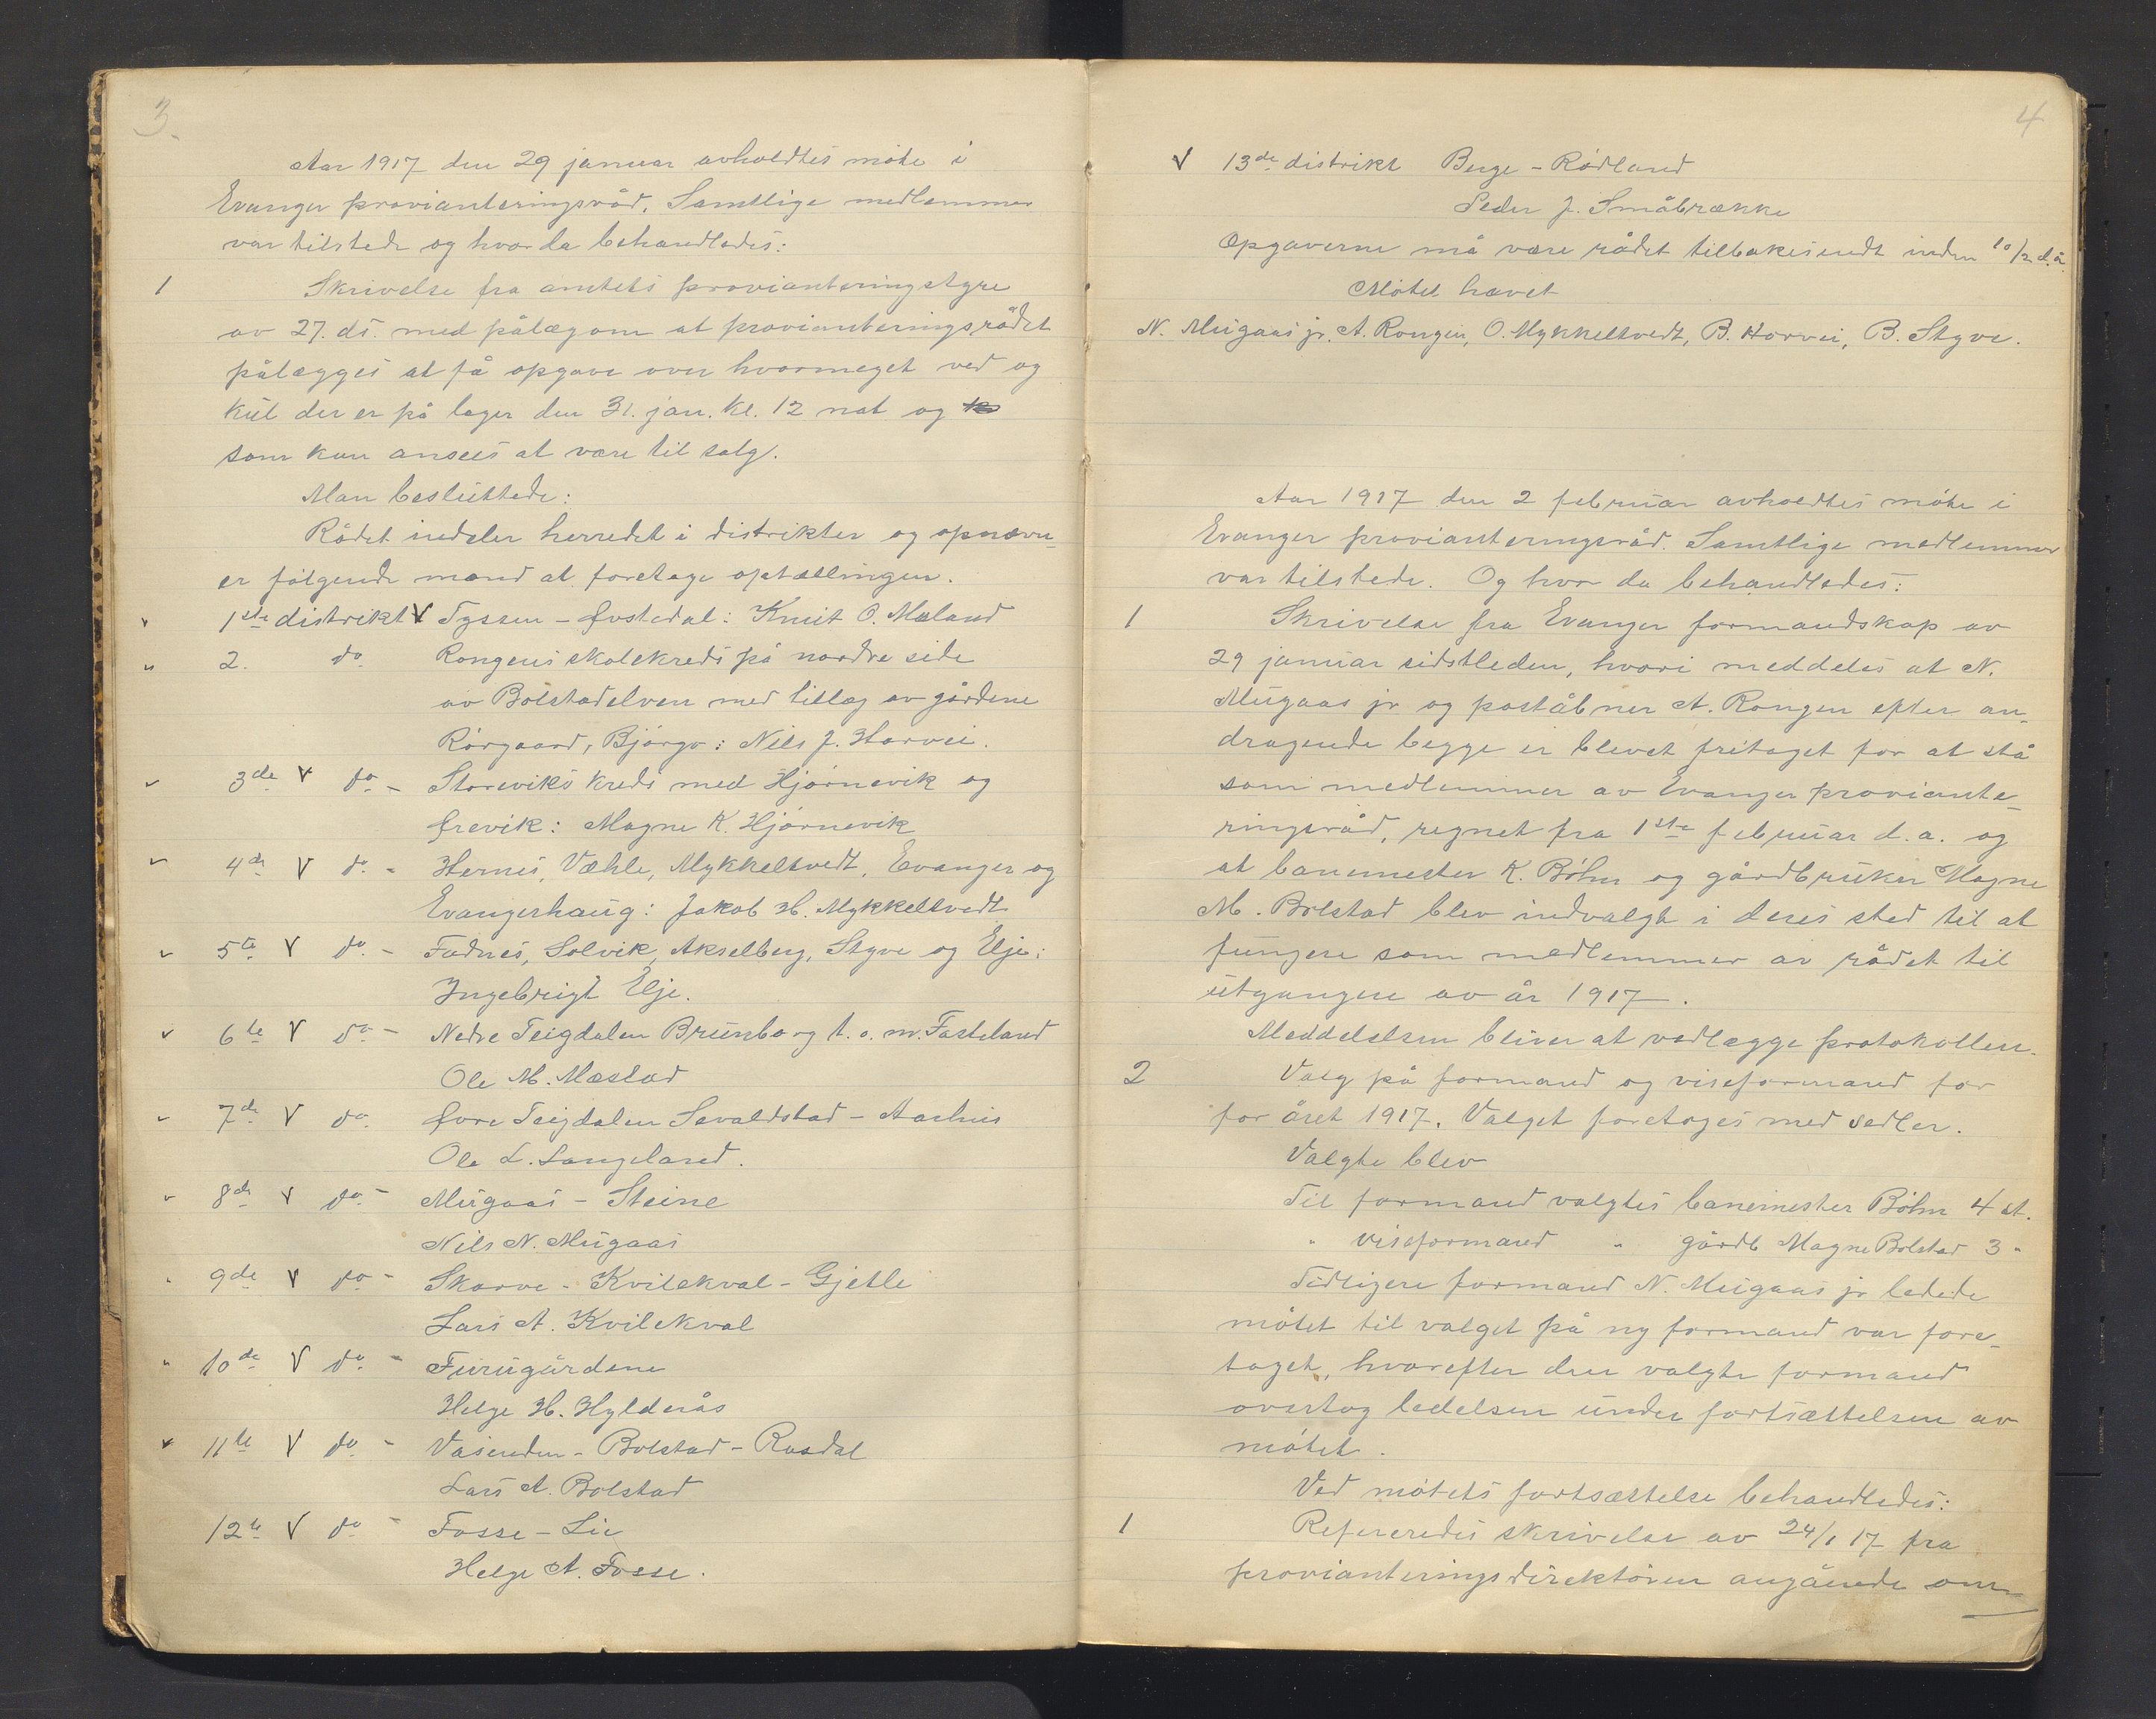 3.
Aar 1917 den 29 januar avholdtes möte i
Evanger provianteringsråd. Samtlige medlemmer
var tilstede og hvor da behandledes:
1 Skrivelse fra amtets provianteringstyre
av 27. ds. med pålæg om at provianteringsrådet
pålægges at få opgave over hvormeget ved og
kul der er på lager den 31. jan. kl. 12 nat og
som kan ansees at være til salg.
Man besluttede:
Rådet indeler herredet i distrikter og opnævn-
er fölgende mænd at foretage optællingen.
1ste distrikt V Tyssen - Fostedal: Knut O. Mæland
2. do Rongens skolekreds på nordre side
av Bolstadelven med tillæg av gårdene
Rörgaard, Björgo: Nils J. Horvei.
3de V do - Storeviks kreds med Hjörnevik og
Grevik: Magne K. Hjörnevik
4de V do - Hernes, Væhle, Mykkeltvedt, Evanger og
Evangerhaug: Jakob H. Mykkeltvedt
5te V do - Fadnes, Solvik, Akselberg, Styve og Elje:
Ingebrigt Elje.
6te V do - Nedre Teigdalen Brunborg t. o. m. Fasteland
Ole M. Mæstad
7de V do Övre Teigdalen Sevaldstad - Aarhus
Ole L. Langeland.
8de V do - Mugaas - Steine
Nils N. Mugaas
9de V do - Skorve - Kvilekval - Gjetle
Lars A. Kvilekval
10de V do - Furugårdene
Helge H. Hyldnås
11te V do - Vasenden - Bolstad - Rasdal
Lars A. Bolstad
12te V do - Fosse - Lie
Helge A. Fosse.
4
V 13de distrikt Berge - Rödland
Peder J. Småbrække
Opgaverne må være rådet tilbakesendt inden 10/2 d.å.
Mötet hævet
N. Mugaas jr. A. Rongen, O. Mykkeltvedt, B. Horvei, B. Styve.
Aar 1917 den 2 februar avholdtes möte i
Evanger provianteringsråd. Samtlige medlemmer
var tilstede. Og hvor da behandledes:
1 Skrivelse fra Evanger formandskap av
29 januar sidstleden, hvori meddeles at N.
Mugaas jr og poståbner A. Rongen efter an-
dragende begge er blevet fritaget for at stå
som medlemmer av Evanger proviante-
ringsråd, regnet fra 1ste februar d.a. og
at banemester K. Böhn og gårdbruker Magne
M. Bolstad blev indvalgt i deres sted til at
fungere som medlemmer av rådet til
utgangen av år 1917.
Meddelelsen bliver at vedlægge protokollen.
2 Valg på formand og viseformand for
for året 1917. Valget foretages med sedler.
Valgte blev
Til formand valgtes banemester Böhn 4 st.
" viseformand " gårdb Magne Bolstad 3 "
Tidligere formand N. Mugaas jr ledede
mötet til valget på ny formand var fore-
taget, hvorefter den valgte formand
overtog ledelsen under fortsættelsen av
mötet.
Ved mötets fortsættelse behandledes:
1 Refereredes skrivelse av 24/1 17 fra
provianteringsdirektören angående om